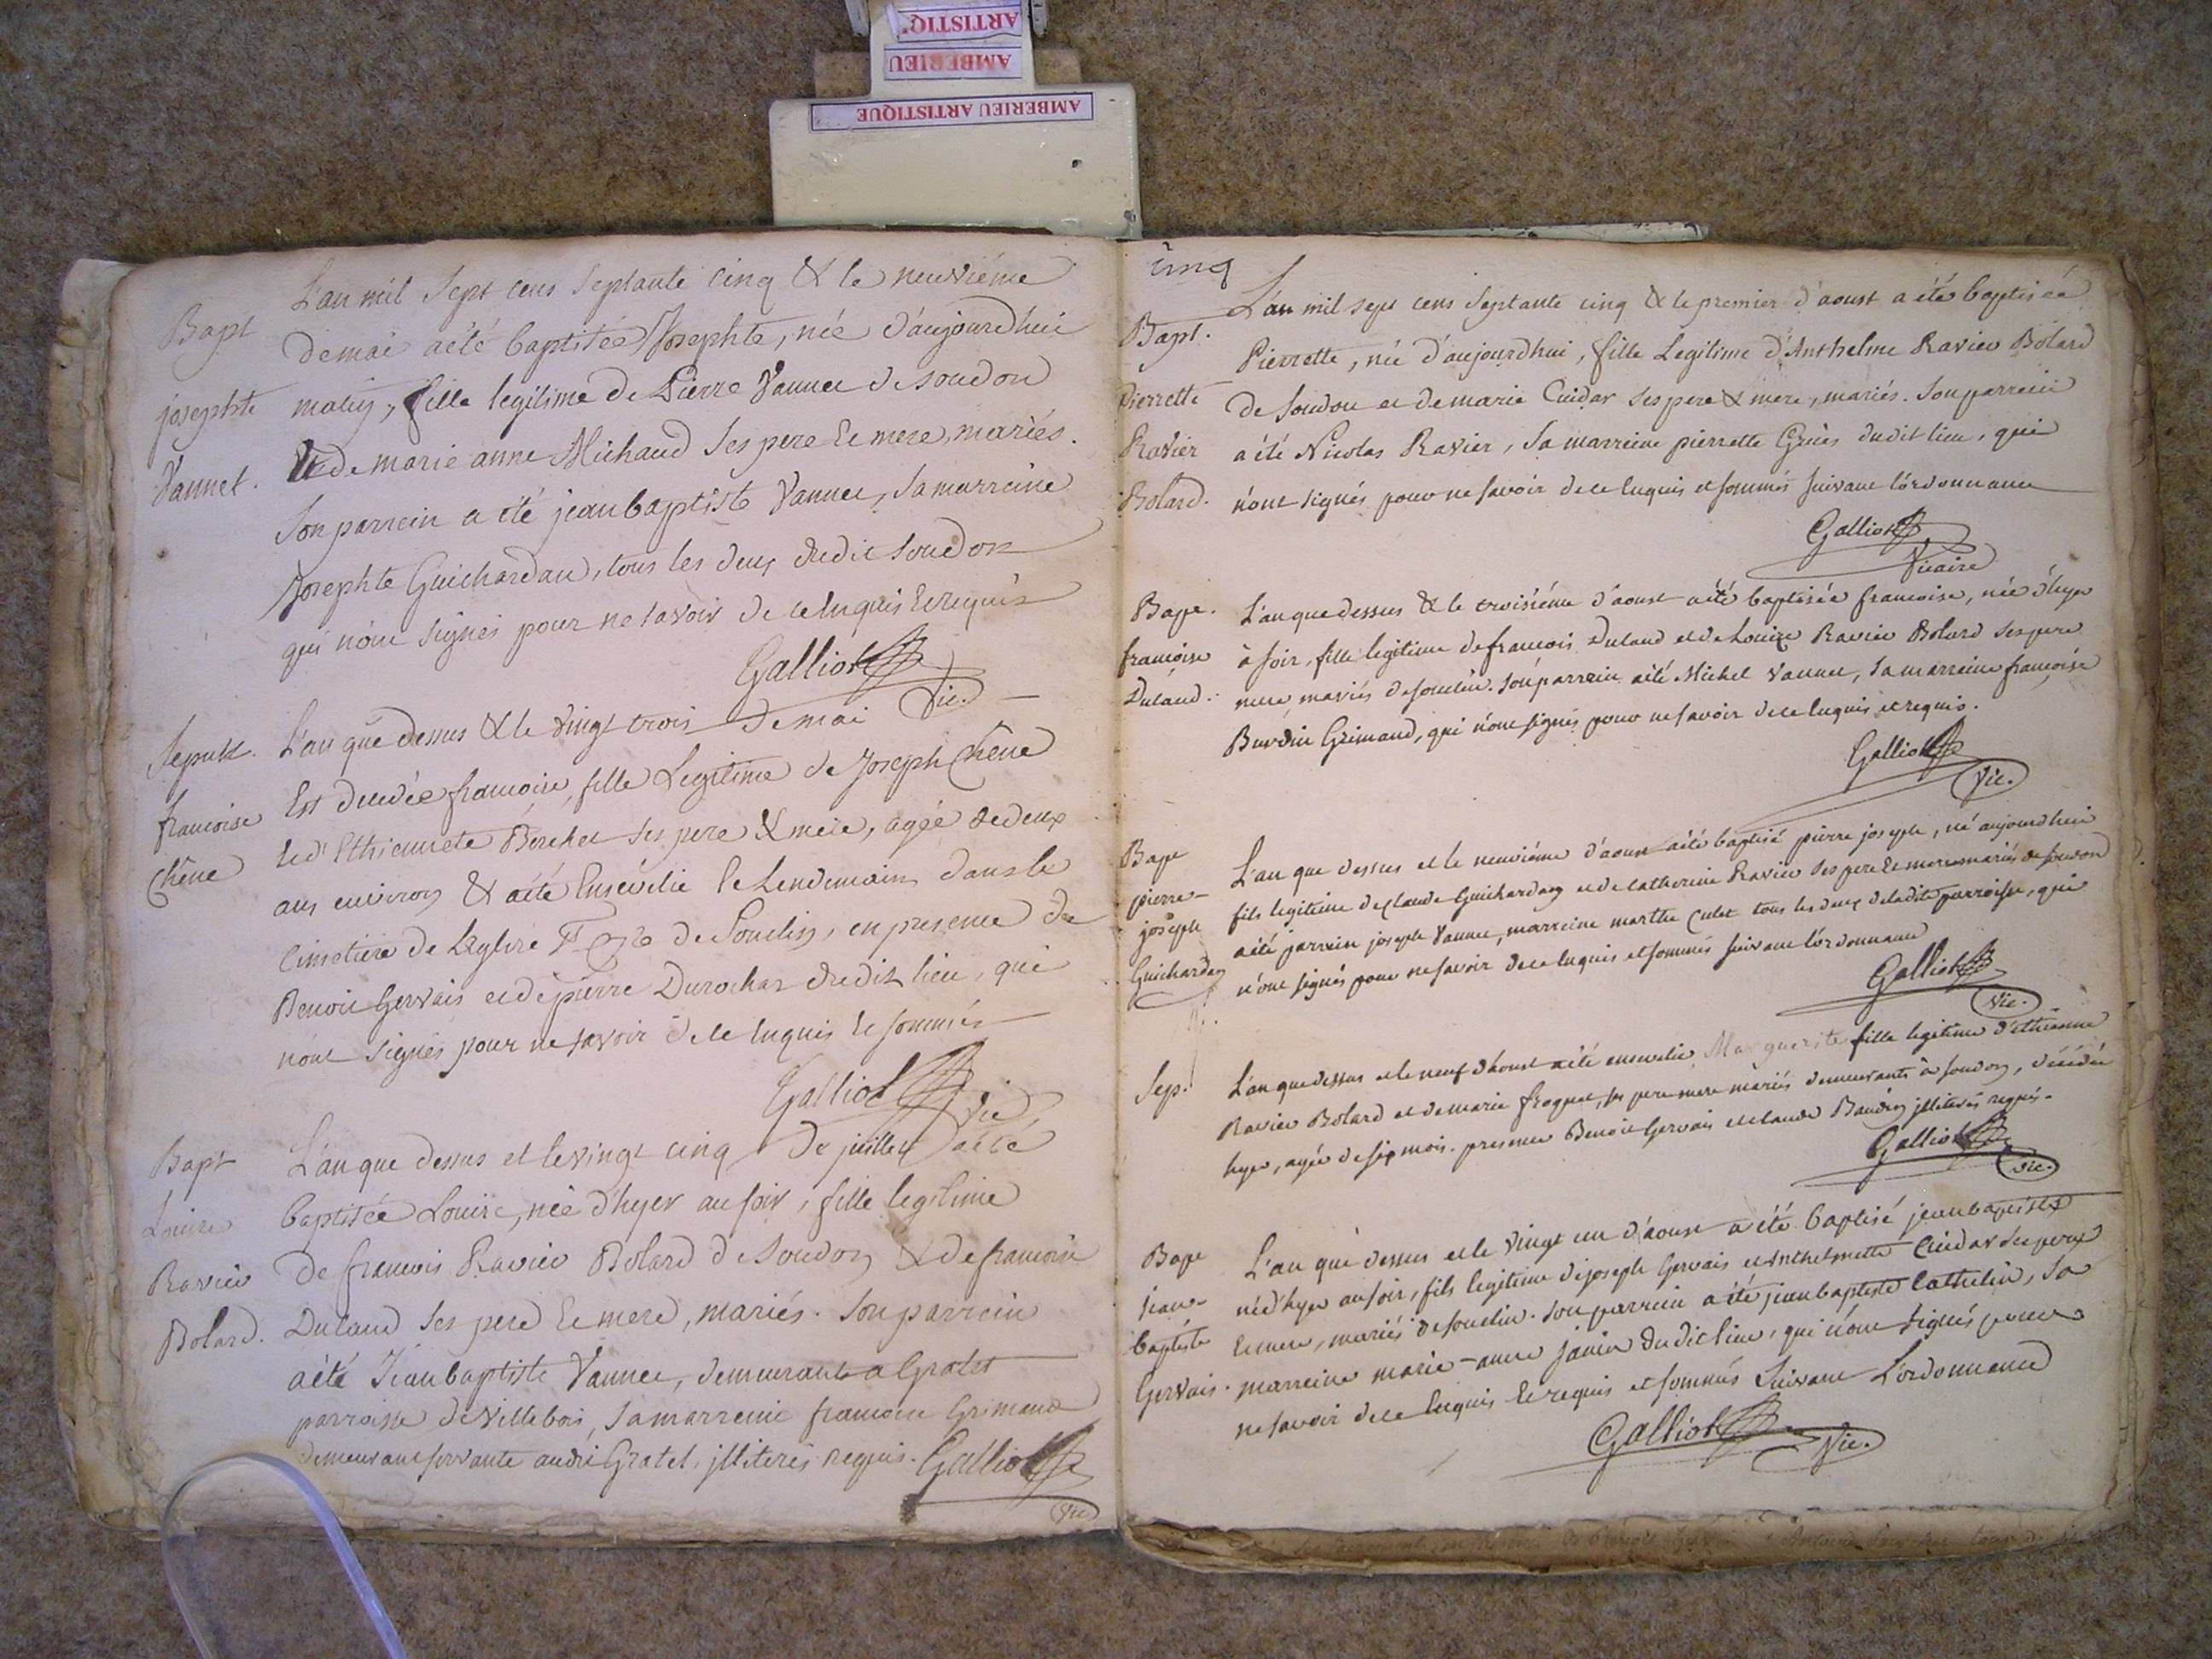 ARTISTIQ
AMBERIEU
AMBERIEU ARTISTIQUE
Bapt
josephte
Vannet.
L'an mil sept cens septante cinq & le neuviéme
de mai a été baptisée Josephte, née d'aujourdhui
matin, fille legitime de Pierre Vannet de soudon
& de marie anne Michaud ses pere et mere, mariés.
Son parrein a été jean baptiste Vannet, sa marreine
Josephte Guichardan, tous les deux dudit soudon
qui n'ont signés pour ne savoir de ce enquis et requis
Galliot
Vic.
Sepult.
francoise
Chêne
L'an que dessus & le vingt trois de mai
Est decedée francoise, fille Legitime de Joseph Chêne
et d'Ethiennete Berchet ses pere & mere, agée de deux
ans environ & a été Ensévelie le Lendemain dans le
Cimetiere de L'eglise de Souclin, en presence de
Benoit Gervais et de pierre Durochat dudit lieu, qui
n'ont signés pour ne savoir de ce enquis et sommés
Galliot
Vic
Bapt
Louise
Ravier
Bolard.
L'an que dessus et le vingt cinq de juillet a été
baptisée Louise, née d'hyer au soir, fille legitime
de francois Ravier Bolard de Soudon & de francoise
Duland ses pere et mere, mariés. Son parrein
a été Jean baptiste Vannet, demeurant a Gratet
parroisse de Villebois, sa marreine francoise Grimand
demeurant servante audit Gratet, illiterés requis. Galliot
Vic
cinq
Bapt.
Pierrette
Ravier
Bolard.
L'an mil sept cens septante cinq & le premier d'aoust a été baptisée
Pierrette, née d'aujourdhui, fille Legitime d'Anthelme Ravier Bolard
de Soudon et de marie Cuidar ses pere & mere, mariés. Son parrein
a été Nicolas Ravier, Sa marreine pierrette dudit lieu, qui
n'ont signés pour ne savoir de ce enquis et sommés suivant l'ordonnance
Galliot
Vicaire
Bapt.
francoise
Duland.
L'an que dessus & le troisiéme d'aoust a été baptisée francoise, née d'hyer
à soir, fille legitime de francois Duland et de Louize Ravier Bolard ses pere
mere, mariés de souclin. Son parrein a été Michel Vannet, sa marreine francoise
Burdin Grimand, qui n'ont signés pour ne savoir de ce enquis et requis.
Galliot
Vic.
Bapt
pierre-
joseph
Guichardan
L'an que dessus et le neuviéme d'aoust a été baptisé pierre joseph, né aujourdhui
fils legitime de claude Guichardan et de catherine Ravier ses pere et mere mariés de soudon
a été parrein joseph Vannet, marreine marthe Culet tous les deux de ladite parroisse, qui
n'ont signés pour ne savoir de ce enquis et sommés suivant l'ordonnance
Galliot
Vic.
Sep.
L'an que dessus et le neuf d'aoust a été ensevelie Marguerite fille legitime d'ethienne
Ravier Bolard et de marie froquet, ses pere mere mariés demeurants à soudon, décédée
hyer, agée de six mois. presence Benoit Gervais et claude Baudin illiterés requis.
Galliot
Vic.
Bapt
jean-
baptiste
Gervais.
L'an que dessus et le vingt un d'aoust a été baptisé jean baptiste
né d'hyer au soir, fils legitime de joseph Gervais et Anthelmette Cuidar ses pere
et mere, mariés de souclin. Son parrein a été jean baptiste Cathelin, sa
marreine marie-anne janin dudit lieu, qui n'ont signés pour
ne savoir de ce enquis et requis et sommés Suivant L'ordonnance
Galliot
Vic.